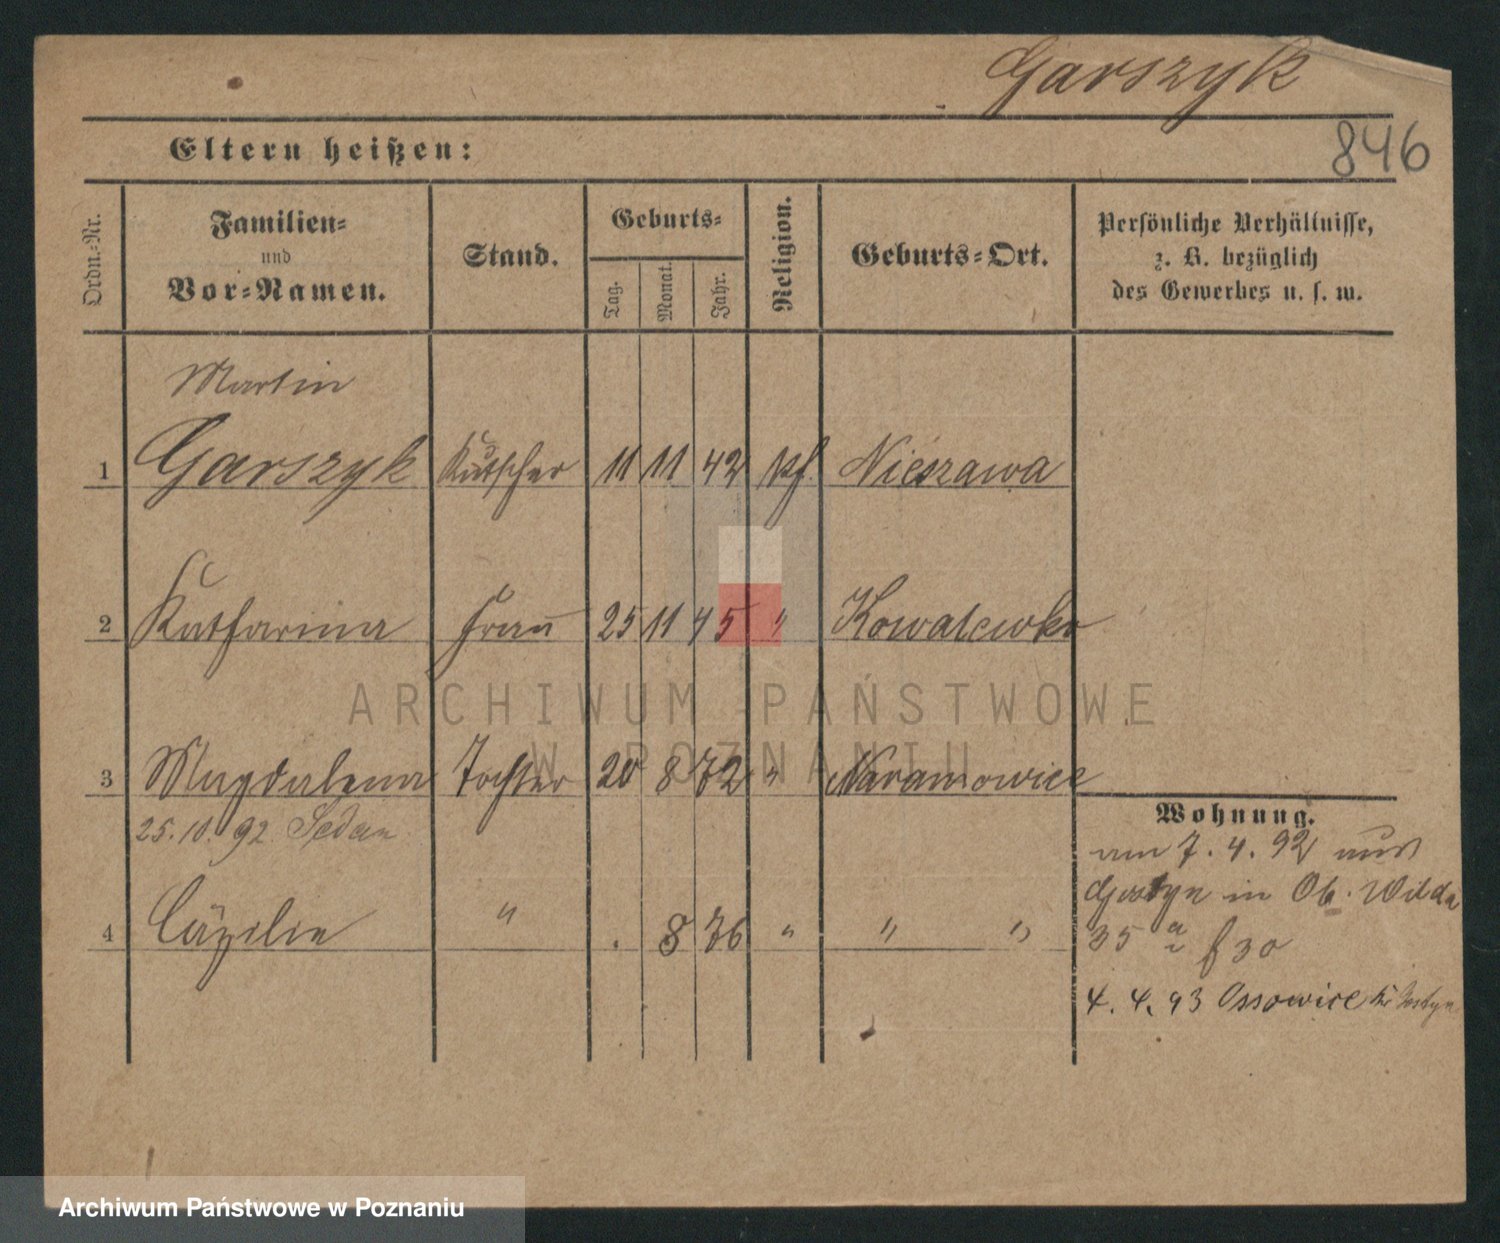 Garszyk
846
Eltern heißen:
Ordn.-Nr.
Familien-
und
Vor-Namen.
Stand.
Geburts-
Tag.
Monat.
Jahr.
Religion.
Geburts-Ort.
Persönliche Verhältnisse,
z. B. bezüglich
des Gewerbes u. s. w.
Martin
1 Garszyk Kutscher 11 11 42 kf. Nieszawa
2 Katharina Frau 25 11 45 " Kowalewko
ARCHIWUM PAŃSTWOWE
W POZNANIU
3 Magdalena Tochter 20 8 72 " Naramowice
25.10.92 Sedan
4 Cäzilie " . 8 76 " " "
Wohnung.
am 7.4.92 aus
Gostyn in Ob. Wilda
35 a f 30
4.4.93 Ossowice Kr Gostyn
Archiwum Państwowe w Poznaniu